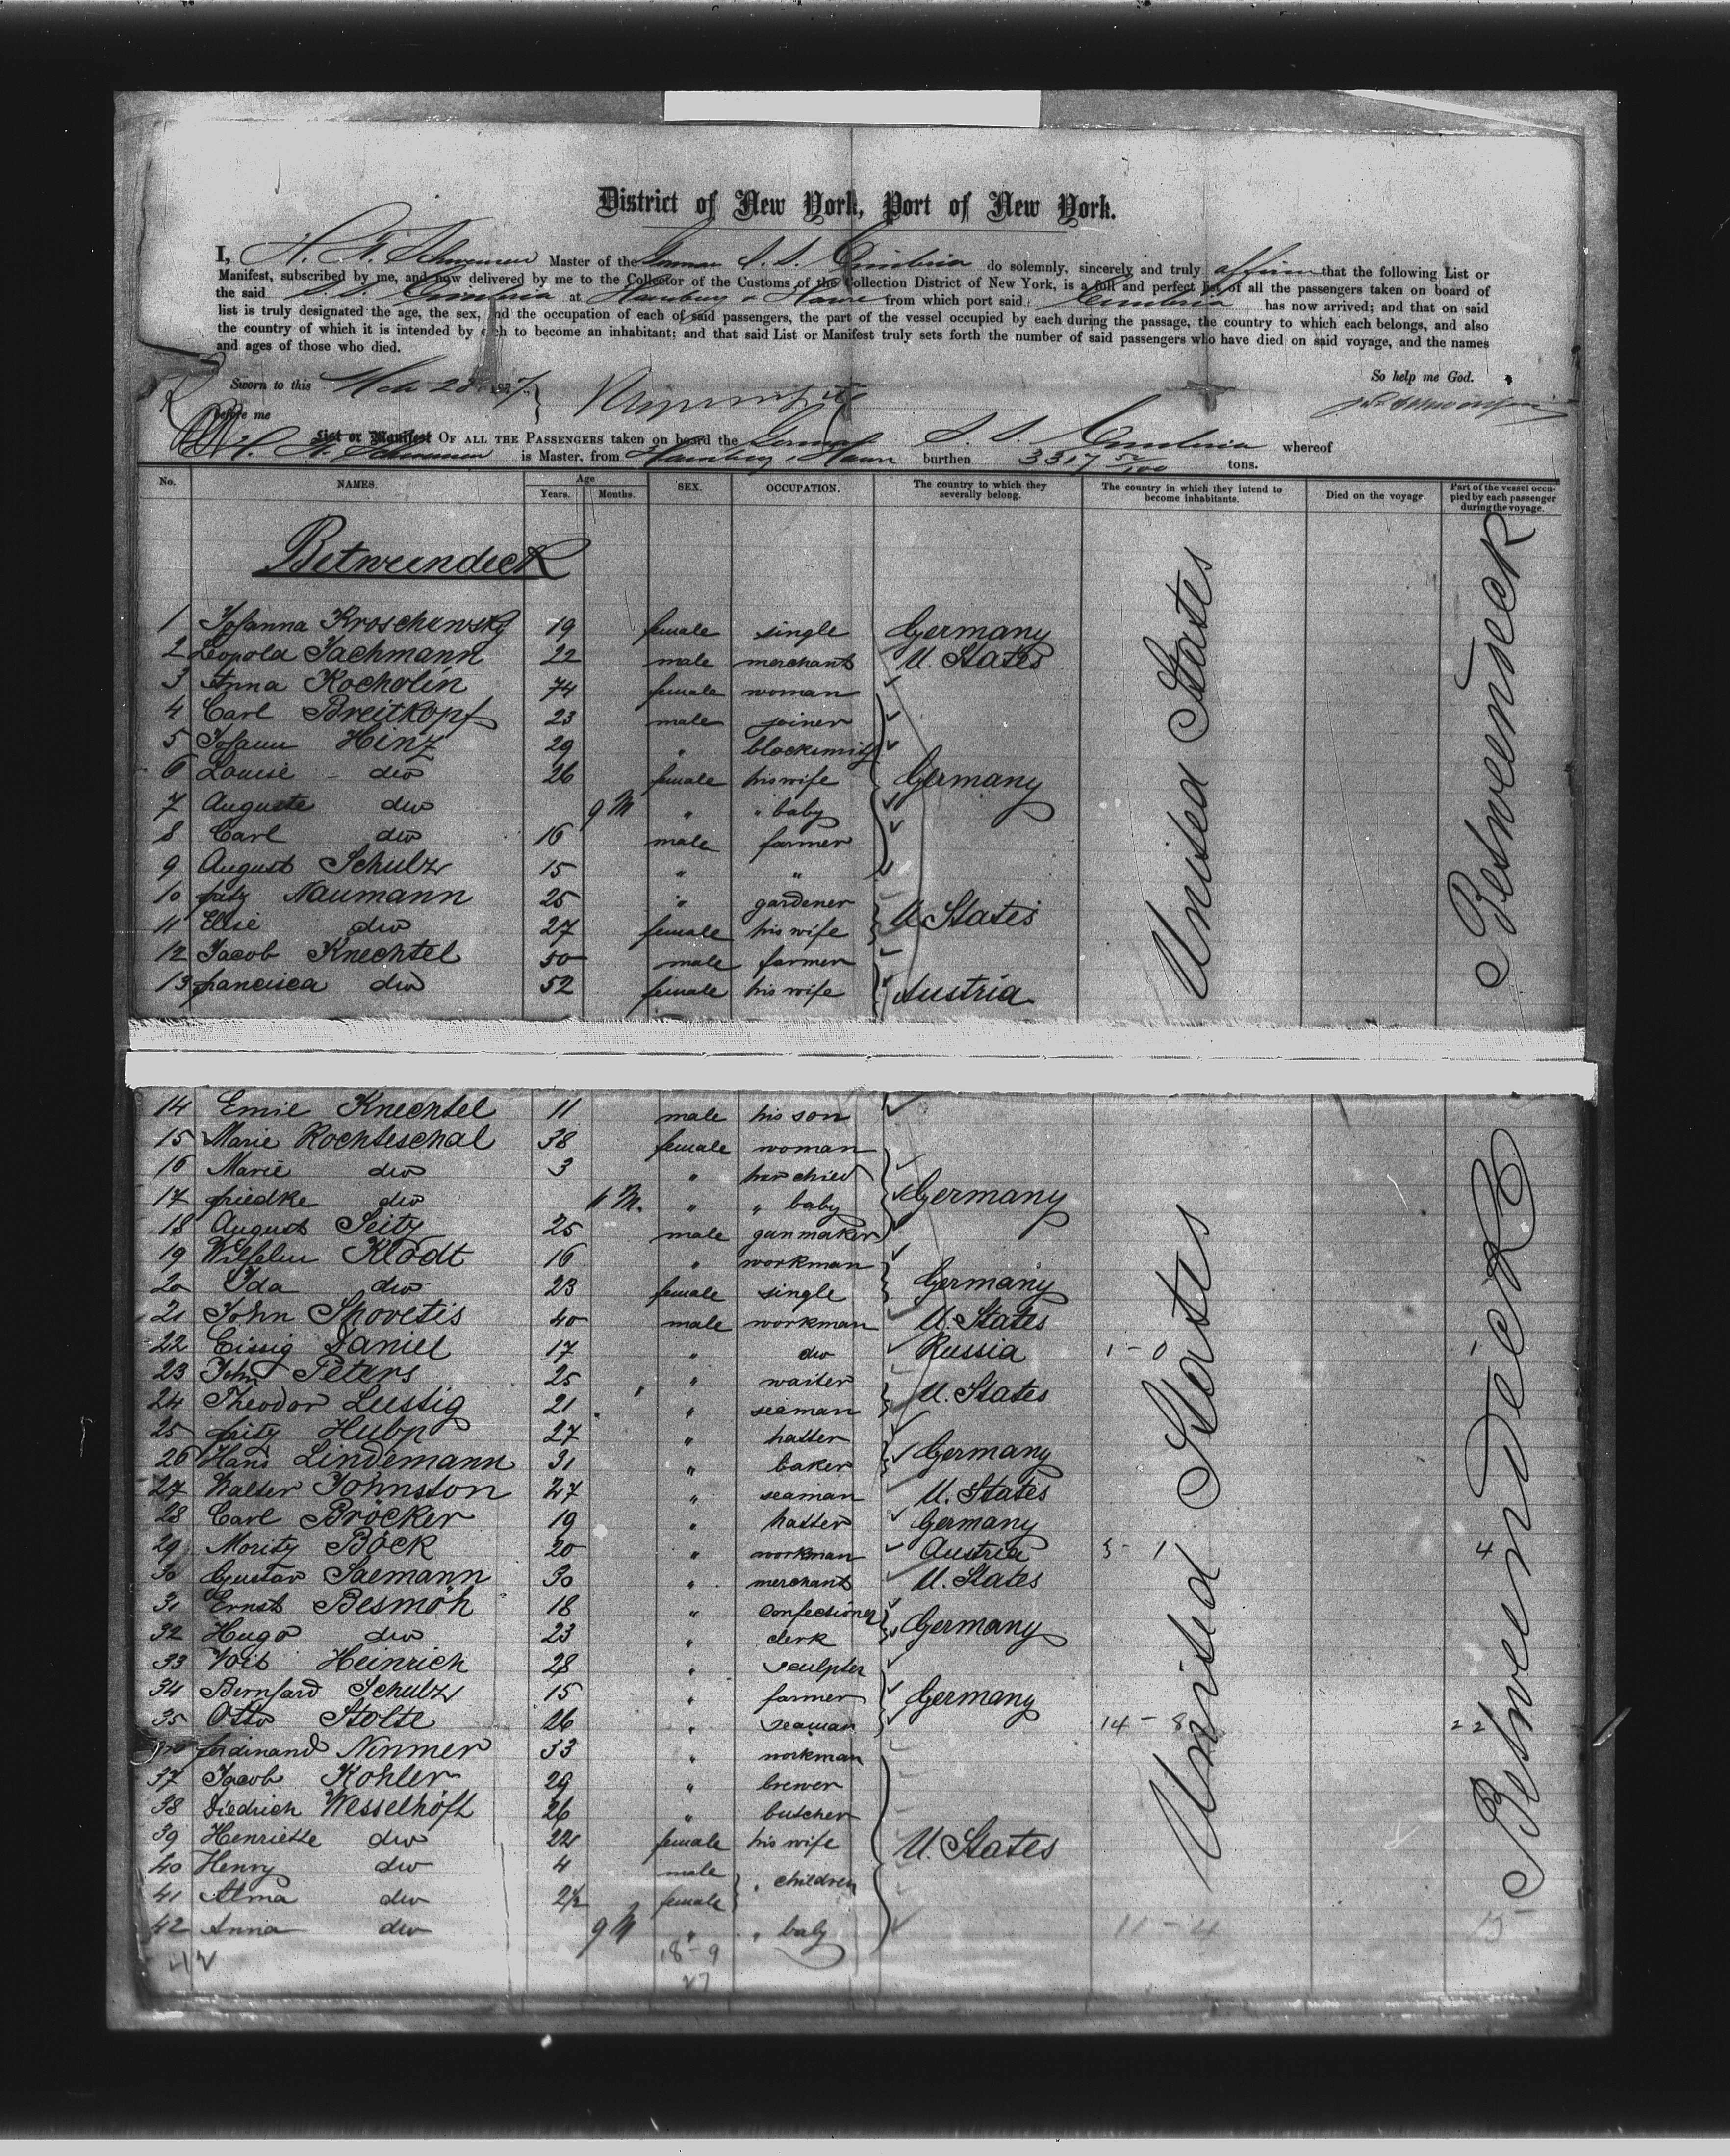 District of New York, Port of New York.
I, H. F. Schwensen Master of the German S. S. Cimbria do solemnly, sincerely and truly affirm that the following List or
Manifest, subscribed by me, and now delivered by me to the Collector of the Customs of the Collection District of New York, is a full and perfect list of all the passengers taken on board of
the said S. S. Cimbria at Hamburg & Havre from which port said Cimbria has now arrived; and that on said
list is truly designated the age, the sex, and the occupation of each of said passengers, the part of the vessel occupied by each during the passage, the country to which each belongs, and also
the country of which it is intended by each to become an inhabitant; and that said List or Manifest truly sets forth the number of said passengers who have died on said voyage, and the names
and ages of those who died.
So help me God.
Sworn to this Mch 28 1877
before me
List or Manifest OF ALL THE PASSENGERS taken on board the German S. S. Cimbria whereof
is Master, from Hamburg & Havre burthen 3317 52/100 tons.
No. NAMES. Age Years. Months. SEX. OCCUPATION. The country to which they severally belong. The country in which they intend to become inhabitants. Died on the voyage. Part of the vessel occupied by each passenger during the voyage.
Betweendeck
1 Johanna Kroschewsky 19 female single Germany
2 Leopold Jachmann 22 male merchant U. States
3 Anna Kocholin 74 female woman
4 Carl Breitkopf 23 male joiner
5 Johann Hinz 29 " blacksmith
6 Louise do 26 female his wife Germany
7 Auguste do 9 M " " baby
8 Carl do 16 male farmer
9 August Schulz 15 " "
10 Fritz Naumann 25 " gardener
11 Elise do 27 female his wife U States
12 Jacob Knechtel 50 male farmer
13 Francisca do 52 female his wife Austria
United States
Betweendeck
14 Emil Knechtel 11 male his son
15 Marie Rochteschal 38 female woman
16 Marie do 3 " her child
17 Friedke do 11 M. " " baby Germany
18 August Seitz 25 male gunmaker
19 Wilhelm Klodt 16 " workman
20 Ida do 23 female single Germany
21 John Shovetis 40 male workman U. States
22 Eissig Daniel 17 " do Russia 1 - 0 1
23 John Peters 25 " waiter
24 Theodor Lustig 21 " seaman U. States
25 Fritz Hubp 27 " hatter
26 Hans Lindemann 31 " baker Germany
27 Walter Johnston 27 " seaman U. States
28 Carl Bröcker 19 " hatter Germany
29 Moritz Böck 20 " workman Austria 3 - 1 4
30 Gustav Saemann 30 " merchant U. States
31 Ernst Besmöh 18 " confectioner
32 Hugo do 23 " clerk Germany
33 Voit Heinrich 28 " sculpter
34 Bernhard Schulz 15 " farmer Germany
35 Otto Stolte 26 " seaman 14 - 8 22
36 Ferdinand Nimmer 33 " workman
37 Jacob Kohler 29 " brewer
38 Diedrich Wesselhöft 26 " butcher
39 Henriette do 22 female his wife U. States
40 Henry do 4 male
41 Alma do 2½ female " children
42 Anna do 9 M " " baby 11 - 4 15
42 18 - 9
27
United States
Betweendeck